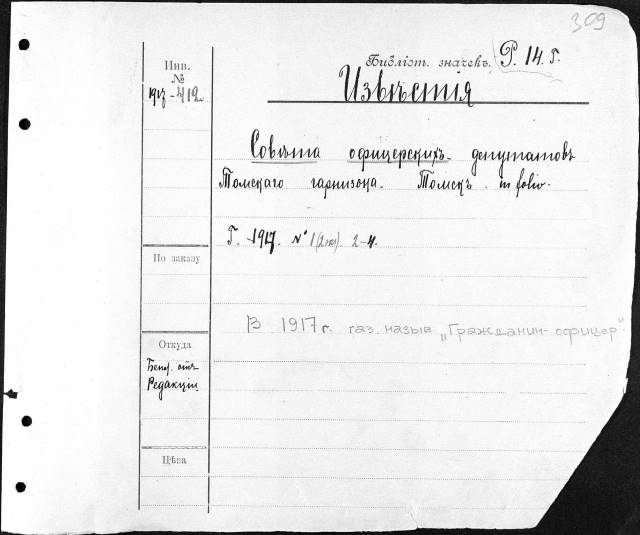 309
Инв.
№
1917-412
Библіот. значекъ. Р. 14. Г.
Извѣстія
Совѣта офицерскихъ депутатовъ
Томскаго гарнизона. Томскъ. in folio.
Г. 1917. № 1 (2 экз) 2-4.
По заказу
В 1917 г. газ. назыв. „Гражданин-офицер"
Откуда
Безп. отъ
Редакціи
Цѣна